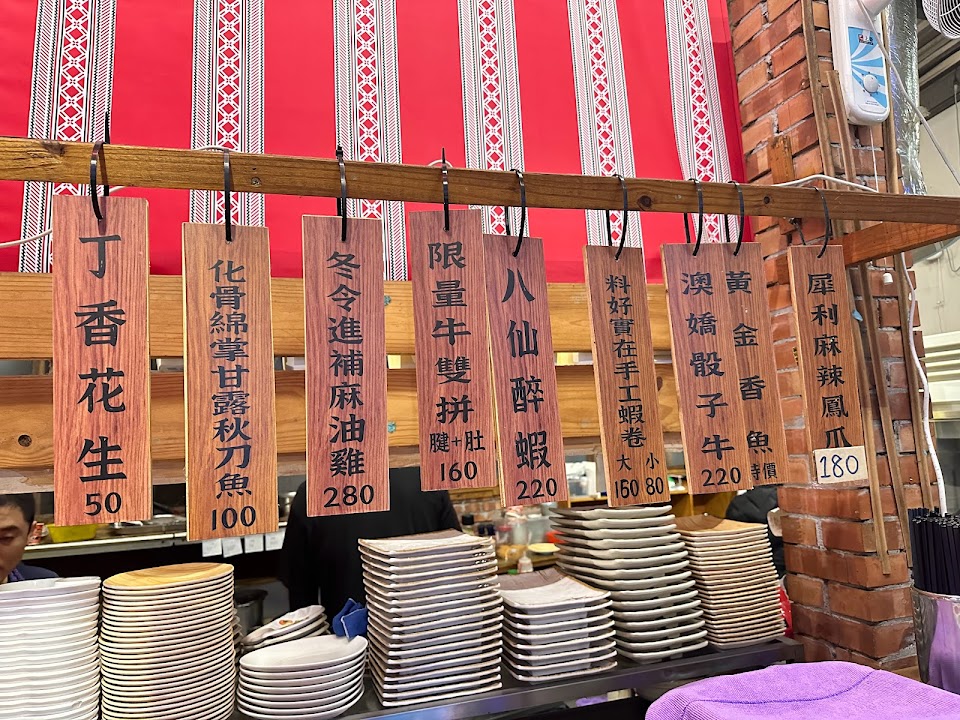 丁香花生
50
化骨綿掌甘露秋刀魚
100
冬令進補麻油雞
280
限量牛雙拼
腱+肚
160
八仙醉蝦
220
料好實在手工蝦卷
大 小
150 80
澳嬌骰子牛
220
黃金香魚
時價
犀利麻辣鳳爪
180